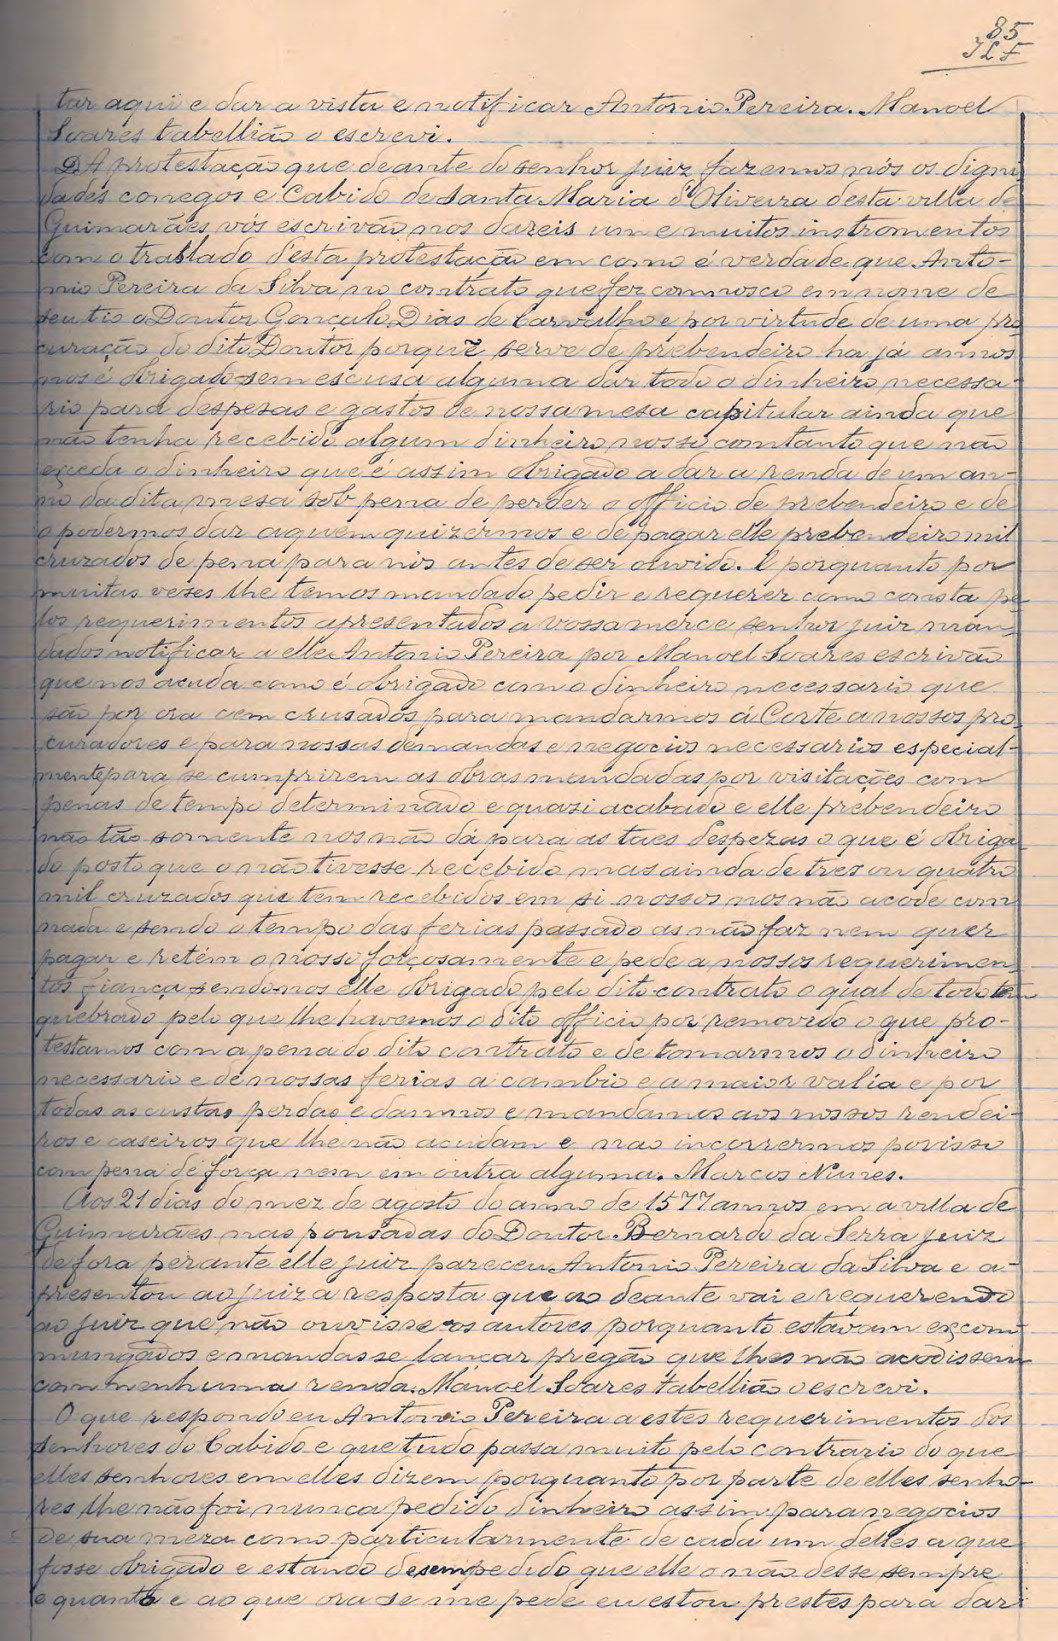 85
tar aqui e dar a vista e notificar Antonio Pereira. Manoel
Soares tabellião o escrevi.
A protestação que deante do senhor juiz fazemos nós os digni
dades conegos e Cabido de Santa Maria d'Oliveira desta villa de
Guimarães, vós escrivão nos dareis um e muitos instromentos
com o traslado d'esta protestação em como é verdade que Anto-
nio Pereira da Silva no contrato que fez comnosco em nome de
seu tio o Doutor Gonçalo Dias de Carvalho e por virtude de uma pro
curação do dito Doutor porque serve de prebendeiro ha já annos
nos é obrigado sem escusa alguma dar todo o dinheiro necessa-
rio para despezas e gastos de nossa mesa capitular ainda que
não tenha recebido algum dinheiro nosso comtanto que não
exceda o dinheiro que é assim obrigado a dar a renda de um an-
no da dita mesa sob pena de perder o officio de prebendeiro e de
o podermos dar a quem quizermos e de pagar elle prebendeiro mil
cruzados de pena para nós antes de ser ouvido. E porquanto por
muitas vezes lhe temos mandado pedir e requerer como consta pe
los requerimentos apresentados a vossa merce senhor juiz man-
dados notificar a elle Antonio Pereira por Manoel Soares escrivão
que nos acuda como é obrigado com o dinheiro necessario que
são por ora cem crusados para mandarmos á Corte a nossos pro
curadores e para nossas demandas e negocios necessarios especial-
mente para se cumprirem as obras mandadas por visitações com
penas de tempo determinado e quazi acabado e elle prebendeiro
não tão somente nos não dá para as taes despezas o que é obriga
do posto que o não tivesse recebido mas ainda de tres ou quatro
mil cruzados que tem recebidos em si nossos nos não acode com
nada e sendo o tempo das ferias passado as não faz nem quer
pagar e retém o nosso forçosamente e pede a nossos requerimen-
tos fiança sendo-nos elle obrigado pelo dito contrato o qual de todo tem
quebrado pelo que lhe havemos o dito officio por removido o que pro-
testamos com a pena do dito contrato e de tomarmos o dinheiro
necessario e de nossas ferias a cambio e a maior valia e por
todas as custas perdas e damnos e mandamos aos nossos rendei-
ros e caseiros que lhe não acudam e nao incorrermos por isso
com pena de força nem em outra alguma. Marcos Nunes.
Aos 21 dias do mez de agosto do anno de 1577 annos em a villa de
Guimarães nas pousadas do Doutor Bernardo da Serra juiz
de fora perante elle juiz pareceu Antonio Pereira da Silva e a-
presentou ao juiz a resposta que ao deante vai e requerendo
ao juiz que não ouvisse os autores porquanto estavam excom-
mungados e mandasse lançar pregão que lhes não acodissem
com nenhuma renda. Manoel Soares tabellião o escrevi.
O que respondo eu Antonio Pereira a estes requerimentos dos
senhores do Cabido e que tudo passa muito pelo contrario do que
elles senhores em elles dizem porquanto por parte de elles senho-
res lhe não foi nunca pedido dinheiro assim para negocios
de sua meza como particularmente de cada um delles a que
fosse obrigado e estando desempedido que elle o não desse sempre
e quanto e ao que ora se me pede eu estou prestes para dar